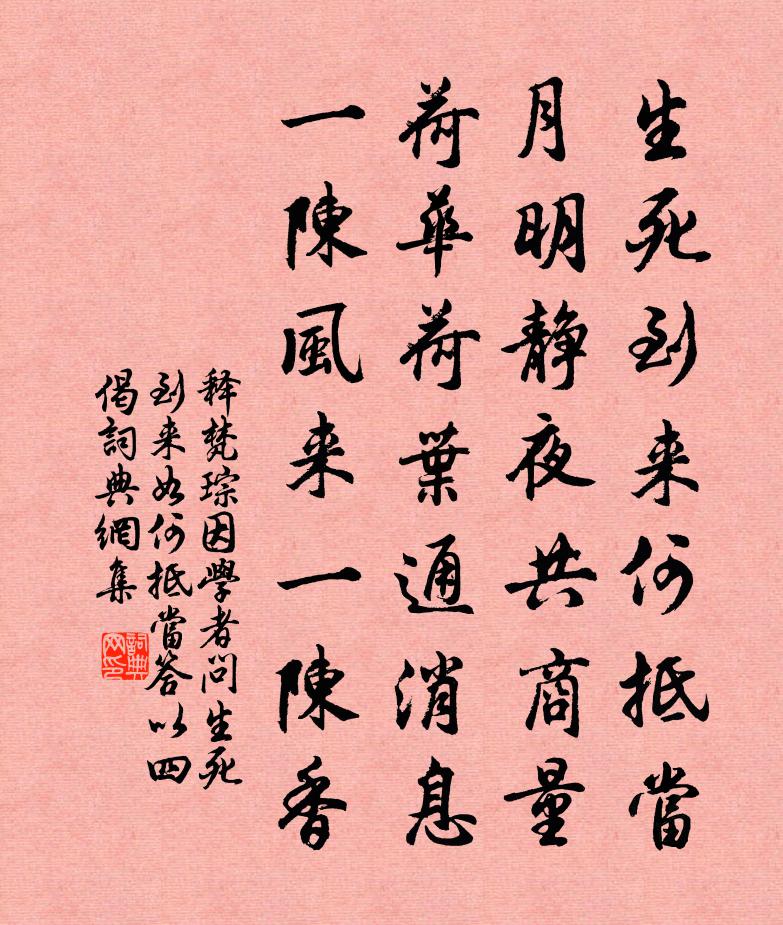 生死到来何抵當
月明静夜共商量
荷華荷葉通消息
一陳風来一陳香
释梵琮因學者問生死
到来如何抵當答以四
偈詞典網集
詞典网印